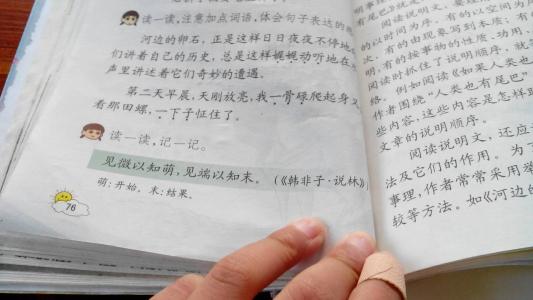 读一读，注意加点词语，体会句子表达的
河边的卵石，正是这样日日夜夜不停地
们讲着自己的历史，总是这样娓娓动听地在
声里讲述着它们奇妙的遭遇。
第二天早晨，天刚放亮，我一骨碌爬起身又
看那田螺，一下子怔住了。
读一读，记一记。
见微以知萌，见端以知末。（《韩非子·说林》）
萌：开始。末：结果。
76
阅读说明文，要理
的以时间为序，有的以空间为
次；有的由现象写到本质；有
明，有的按事物的性质、功用、
阅读时抓住了说明顺序，就
络。例如阅读《如果人类也
作者围绕“人类也有尾巴”
些内容，这些内容是怎样
文章的说明顺序。
阅读说明文，还应
法及它们的作用。为了
事理，作者常常采用举
较等方法。如《河边的